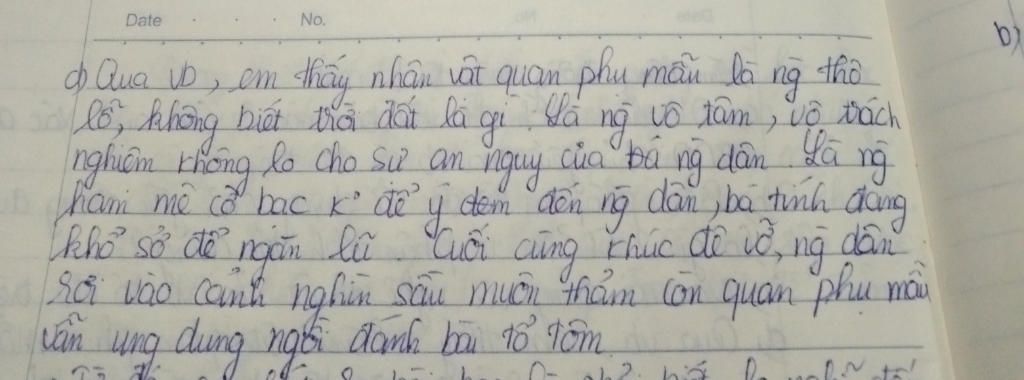 Date No.
b)
d) Qua VB, em thấy nhân vật quan phụ mẫu là ng thô
lỗ, không biết trời đất là gì. Là ng vô tâm, vô trách
nghiệm không lo cho sự an nguy của bá ng dân. Là ng
ham mê cờ bạc k° để ý đem đến ng dân, bá tính đang
khổ sở để ngăn lũ. Cuối cùng khúc đê vỡ, ng dân
rơi vào cảnh nghìn sầu muôn thảm còn quan phụ mẫu
vẫn ung dung ngồi đánh bài tổ tôm.